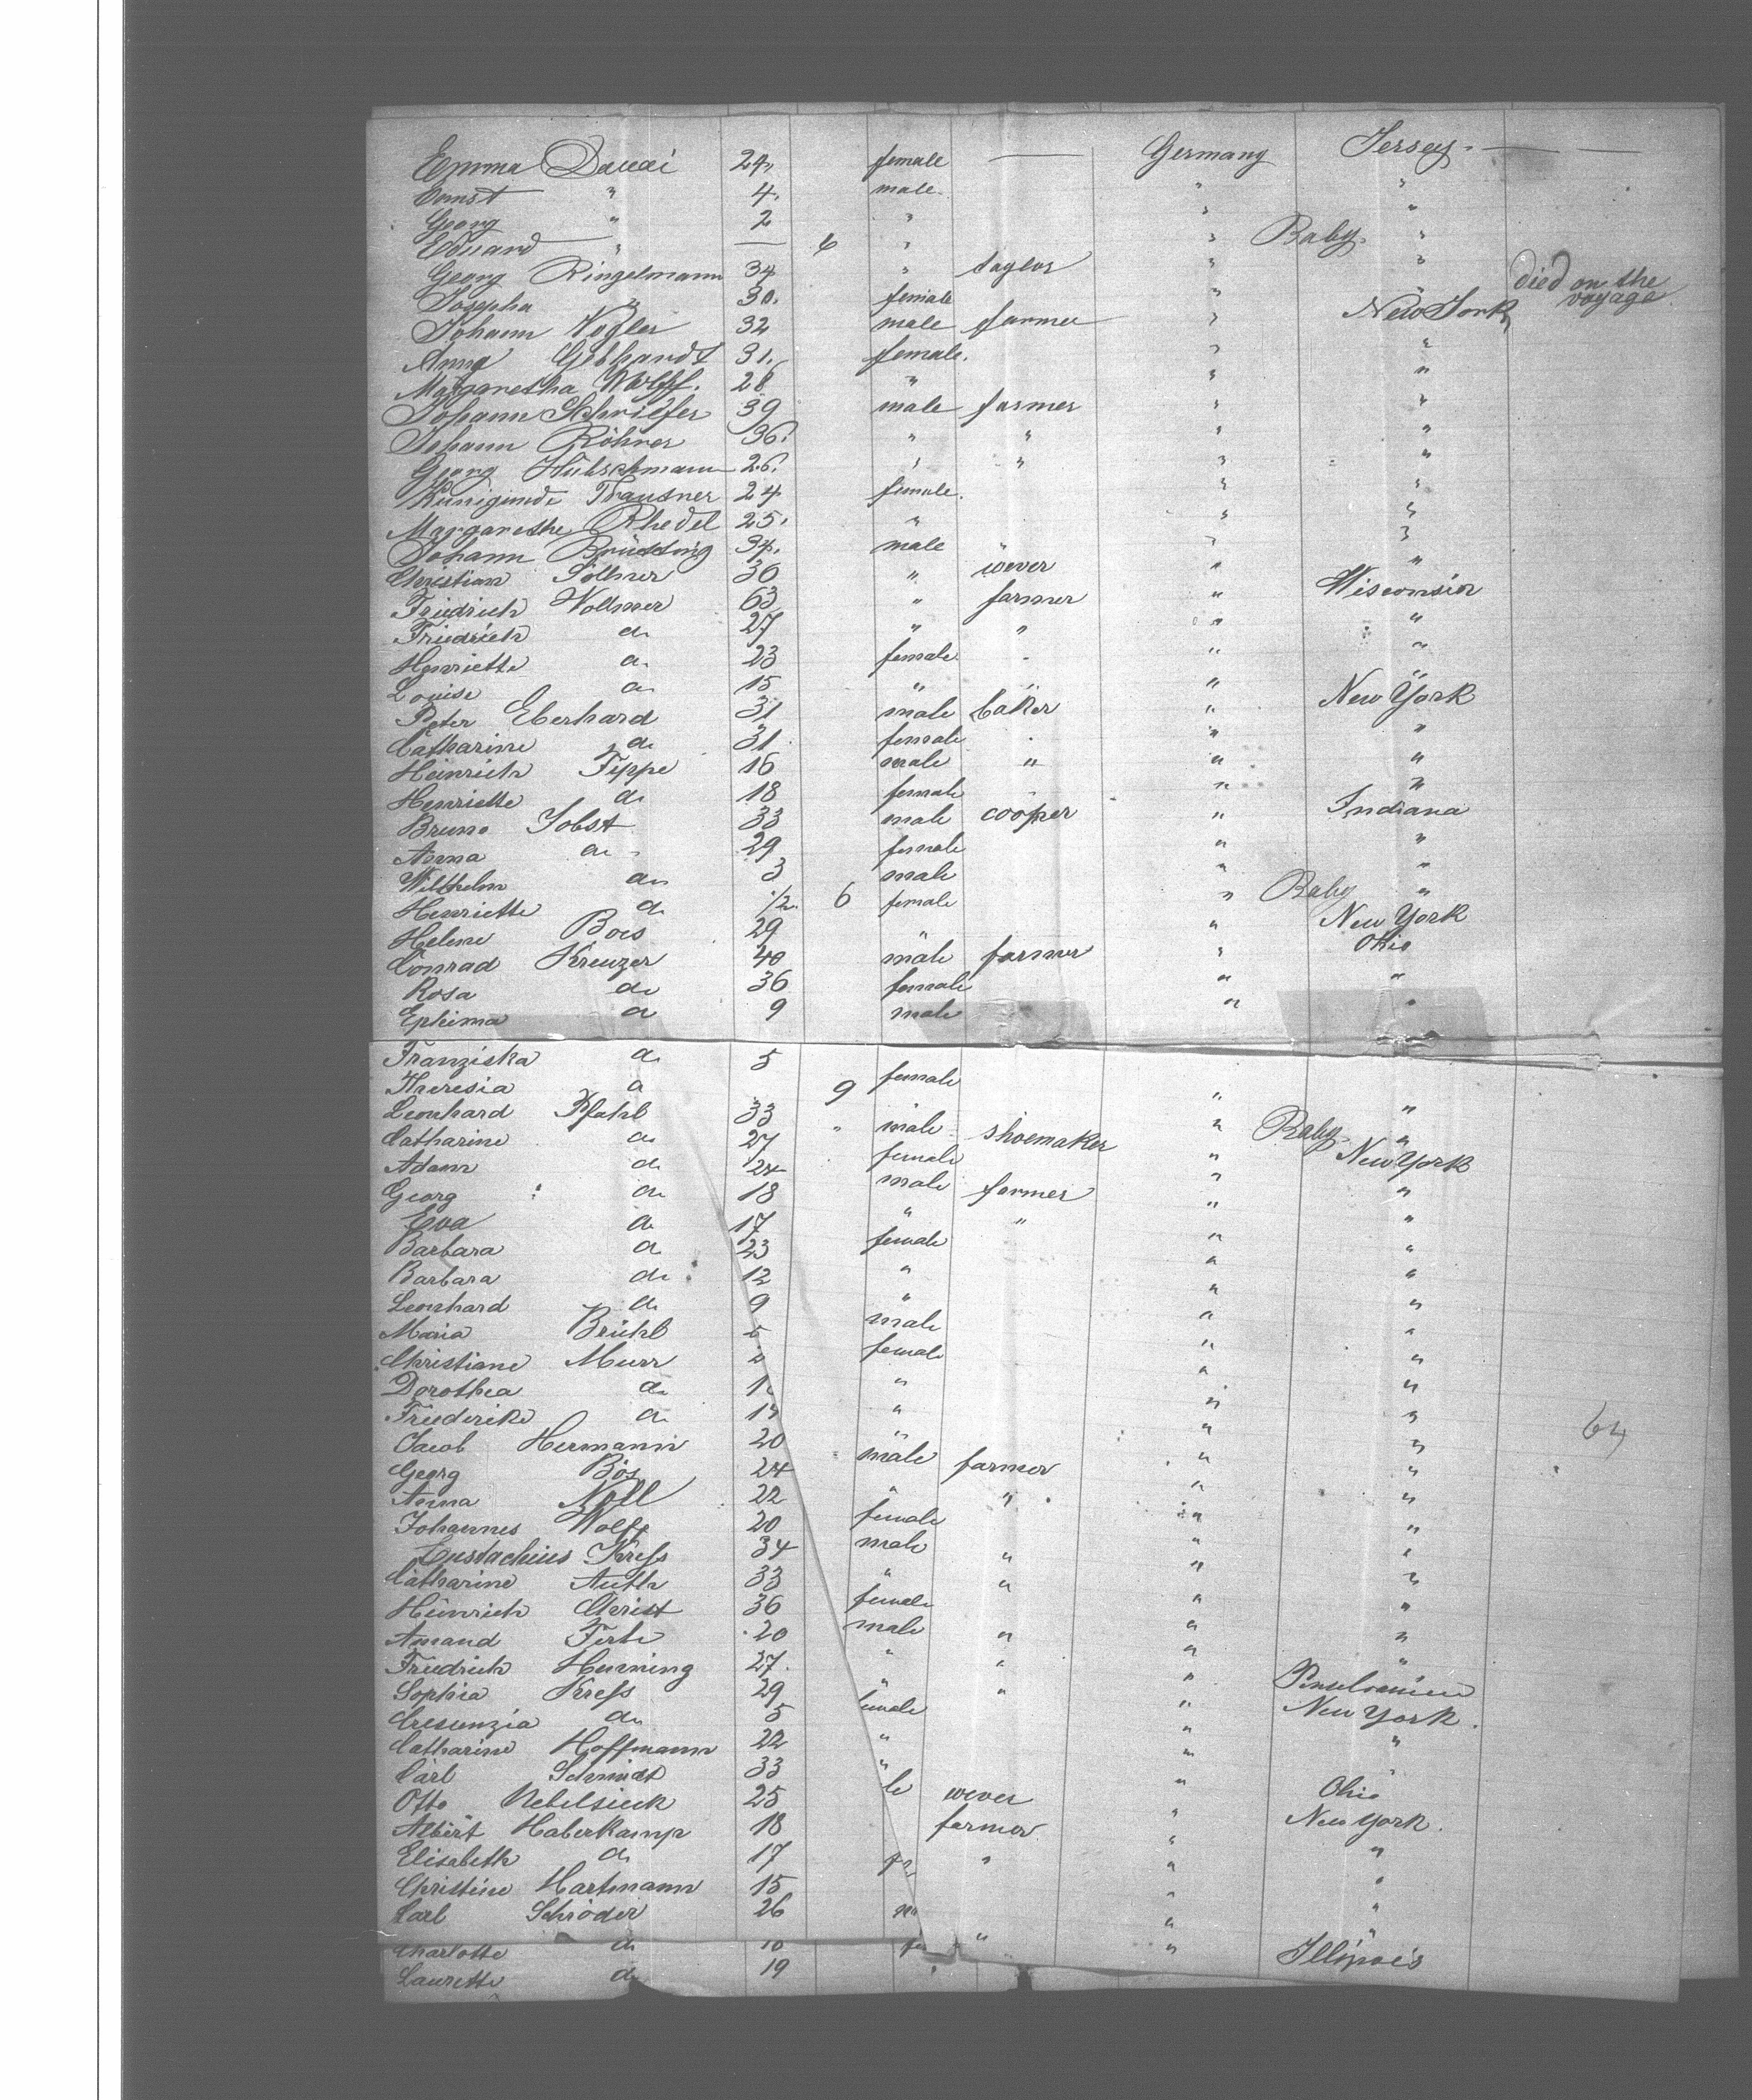 Emma Dauai 24. female — Germany Jersey. — —
Ernst " 4. male " "
Georg " 2 " " "
Eduard " — 6 " " Baby. "
Georg Ringelmann 34 " taylor " "
Josepha " 30. female " " died on the voyage.
Johann Vogler 32 male farmer " New York
Anna Gebhardt 31. female. " "
Margaretha Wolff. 28 " " "
Johann Schriefer 39 male farmer " "
Johann Röhner 36. " " " "
Georg Hübschmann 26. " " " "
Kunigunde Trautner 24 female. " "
Margarethe Rhedel 25. " " "
Johann Brütting 34. male " " "
Christian Söllner 36 " wever " "
Friedrich Vollmer 63 " farmer " Wisconsin
Friedrich do 27 " " " "
Henriette do 23 female " "
Louise do 15 " " "
Peter Eberhard 31 male baker " New York
Catharine do 31 female " "
Heinrich Tippe 16 male " " "
Henriette do 18 female " "
Bruno Jobst 33 male cooper " Indiana
Anna do 29 female " "
Wilhelm do 3 male " "
Henriette do 1/2 6 female " Baby "
Helene Bois 29 " " New York
Conrad Kreuzer 40 male farmer " Ohio
Rosa do 36 female " "
Ephima do 9 male " "
Franziska do 5 female " "
Theresia do 9 " " Baby "
Leonhard Pfahl 33 male shoemaker " New York
Catharine do 27 female " "
Adam do 24 male farmer " "
Georg do 18 " " " "
Eva do 17 female " "
Barbara do 23 " " "
Barbara do 12 " " "
Leonhard do 9 male " "
Maria Brühl female " "
Christiane Murr " " "
Dorothea do " " "
Friederike do " " "
Jacob Hermann 20 male farmer " " 64
Georg Bös 24 " " " "
Anna Noll 22 female " "
Johannes Wolff 20 male " " "
Eustachius Kreß 34 " " " "
Catharine Auth 33 female " "
Heinrich Christ 36 male " " "
Amand 20 " " " "
Friedrich Henning 27. " " " Penselvanien
Sophia Kreß 29 female " New York.
Cresenzia do 5 " " "
Catharine Hoffmann 22 " " "
Carl Schmidt 33 le wever " Ohio
Otto Nebelsieck 25 farmer " New York.
Albert Haberkamp 18 " " "
Elisabeth do 17 fe " "
Christine Hartmann 15 " "
Carl Schröder 26 m " " "
Charlotte do fe " Illinois
Laurette do 19